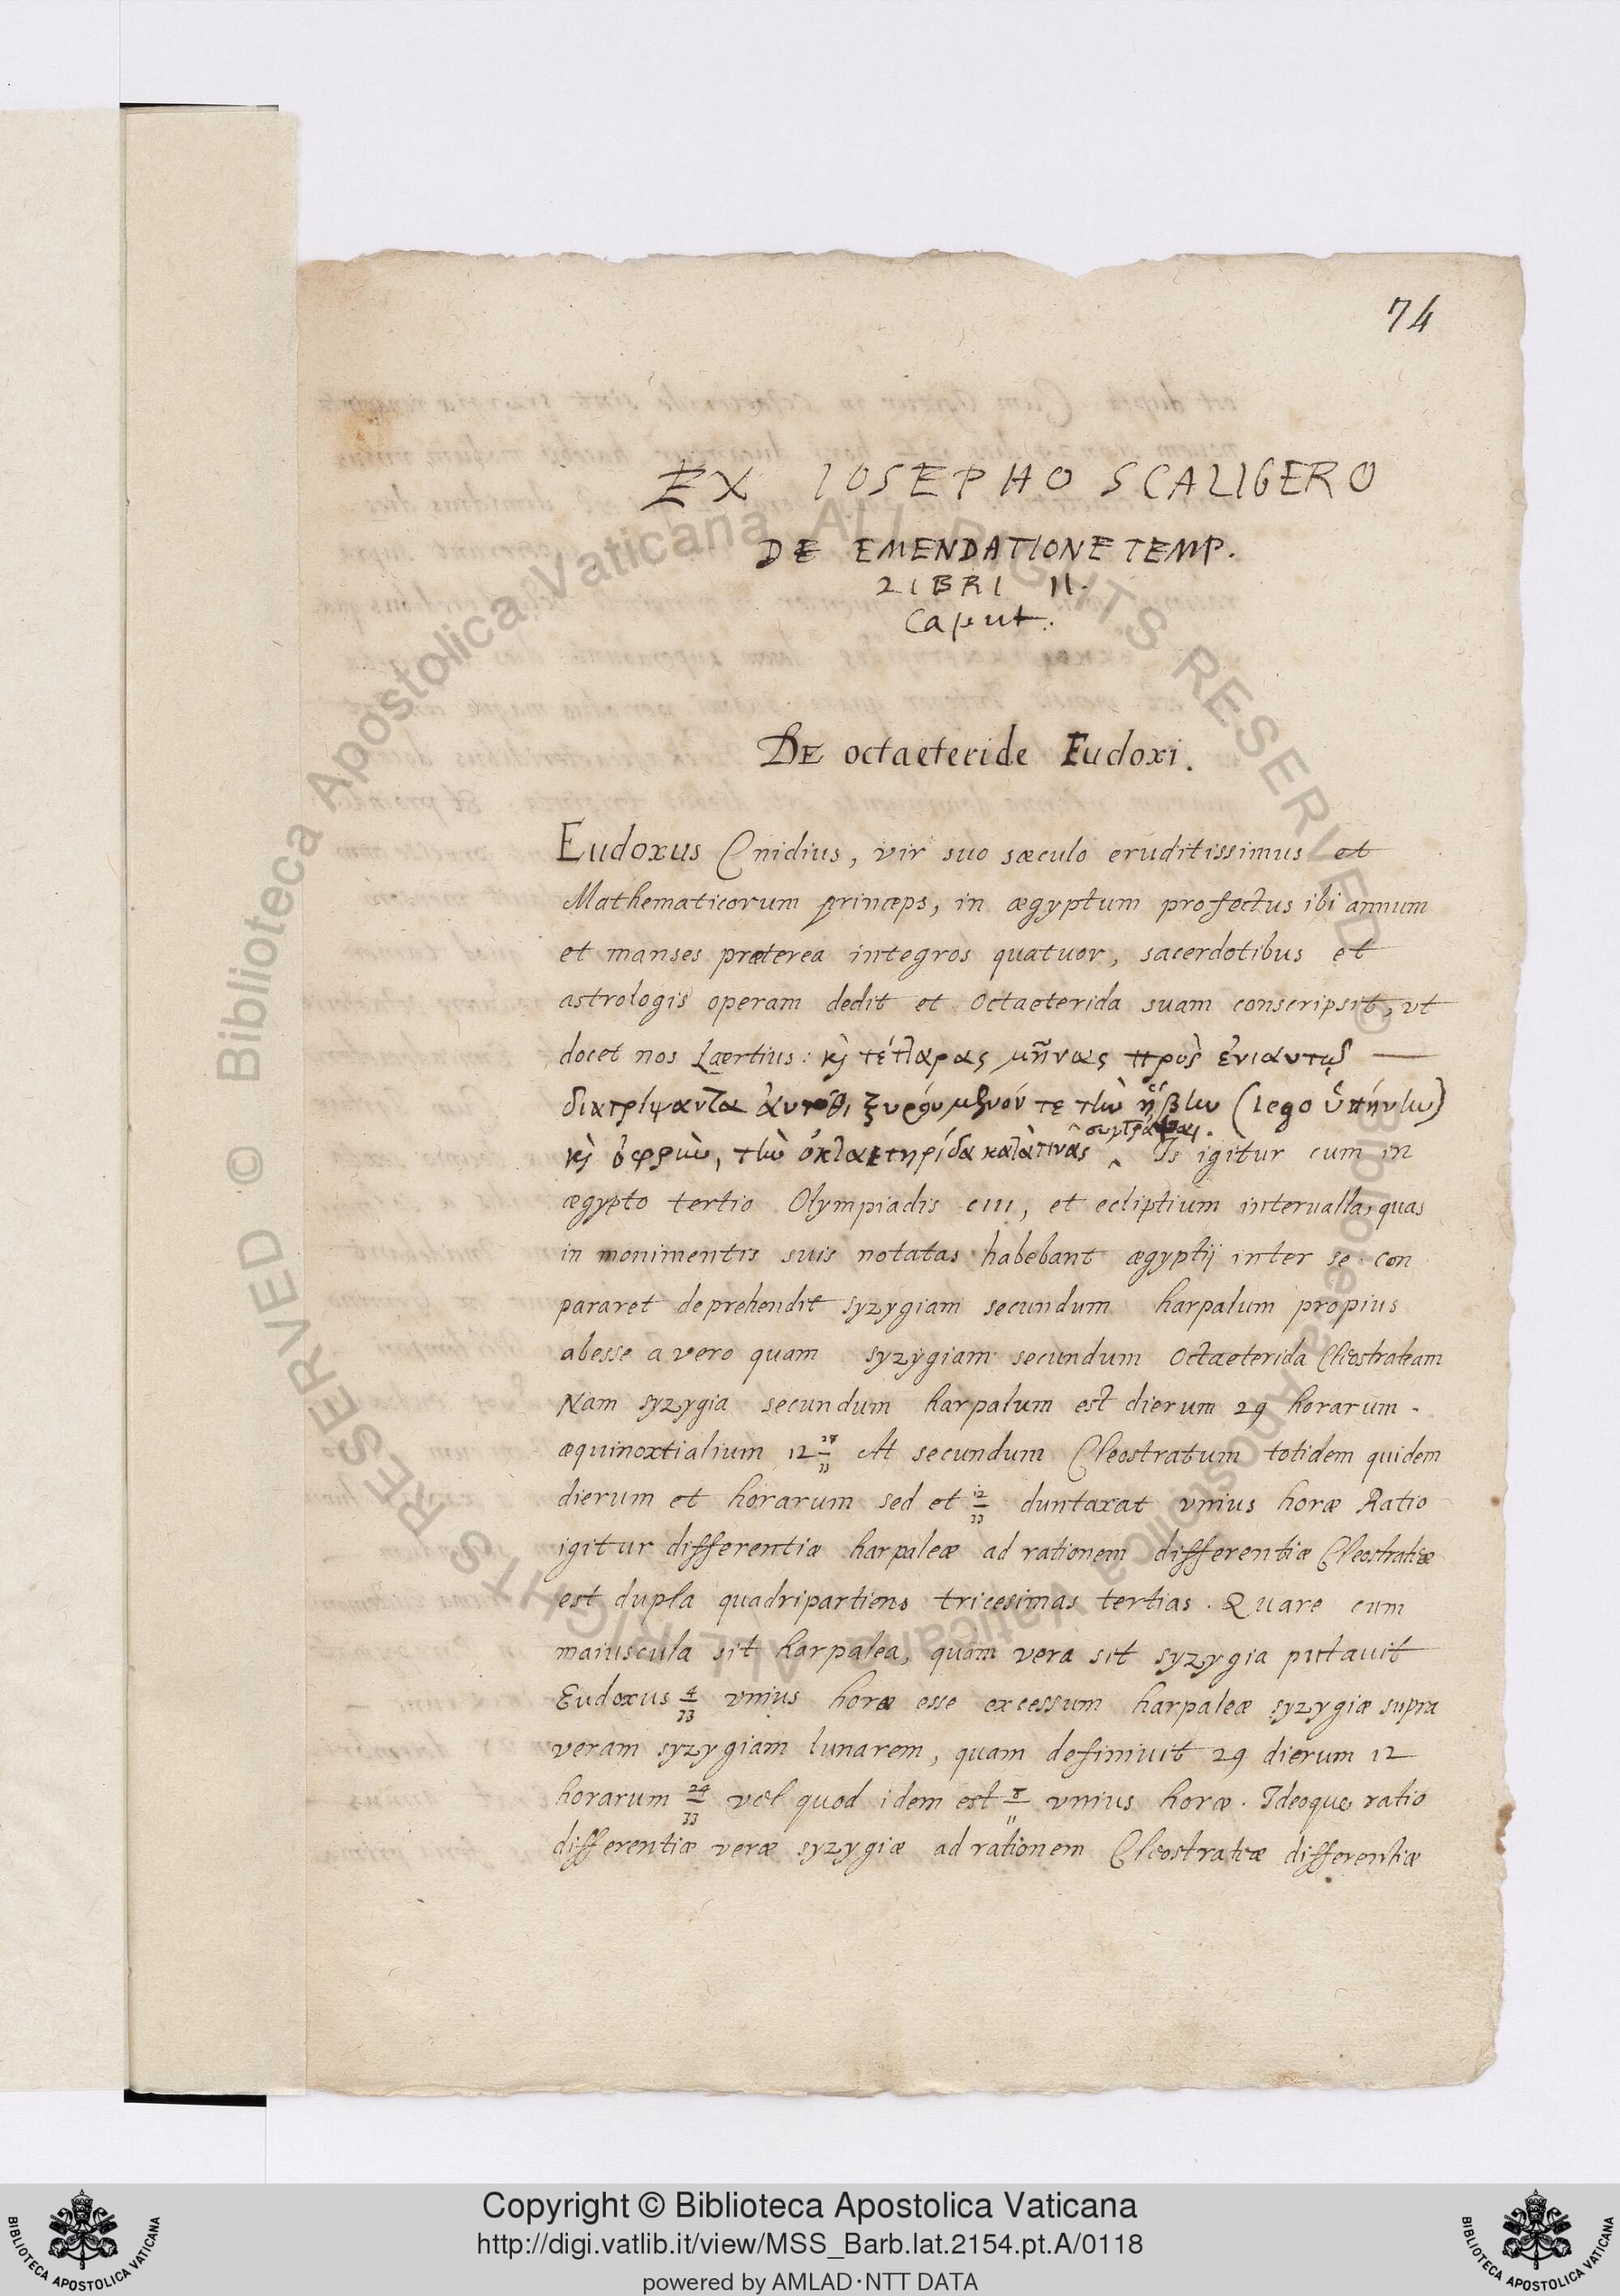 74
EX IOSEPHO SCALIGERO
DE EMENDATIONE TEMP.
LIBRI II.
Caput.
DE octaeteride Eudoxi.
Eudoxus Cnidius, vir suo sæculo eruditissimus et
Mathematicorum princeps, in ægyptum profectus ibi annum
et manses præterea integros quatuor, sacerdotibus et
astrologis operam dedit et octaeterida suam conscripsit, vt
docet nos Laertius: κ̀ τέτλαρας μῆνας πρὸς ἐνιαυτῷ
διατρίψαντα ἀυτόθι ξυρόυμενόν τε τὼ ἥβlω (lego ὑπήνlω)
κ̀ ὀφρὼ, τlὼ ὀκλαετηρίδα κατὰ τινὰς συγγράψαι. Is igitur cum in
ægypto tertio Olympiadis CIII, et ecliptium interualla, quas
in monimentis suis notatas habebant ægyptij inter se con
pararet deprehendit syzygiam secundum harpalum propius
abesse a vero quam syzygiam secundum octaeterida Cleostrateam
Nam syzygia secundum harpalum est dierum 29 horarum
æquinoxtialium 12 28/33 At secundum Cleostratum totidem quidem
dierum et horarum sed et 12/33 duntaxat vnius horæ Ratio
igitur differentiæ harpaleæ ad rationem differentiæ Cleostrateæ
est dupla quadripartiens tricesimas tertias. Quare cum
maiuscula sit harpalea, quam vera sit syzygia putauit
Eudoxus 4/33 vnius horæ esse excessum harpaleæ syzygiæ supra
veram syzygiam lunarem, quam definiuit 29 dierum 12
horarum 24/33 vel quod idem est 8/11 vnius horæ. Ideoque ratio
differentiæ veræ syzygiæ ad rationem Cleostrateæ differentiæ
© Biblioteca Apostolica Vaticana ALL RIGHTS RESERVED
© Biblioteca Apostolica Vaticana ALL RIGHTS RESERVED
BIBLIOTECA APOSTOLICA VATICANA
Copyright © Biblioteca Apostolica Vaticana
http://digi.vatlib.it/view/MSS_Barb.lat.2154.pt.A/0118
powered by AMLAD·NTT DATA
BIBLIOTECA APOSTOLICA VATICANA